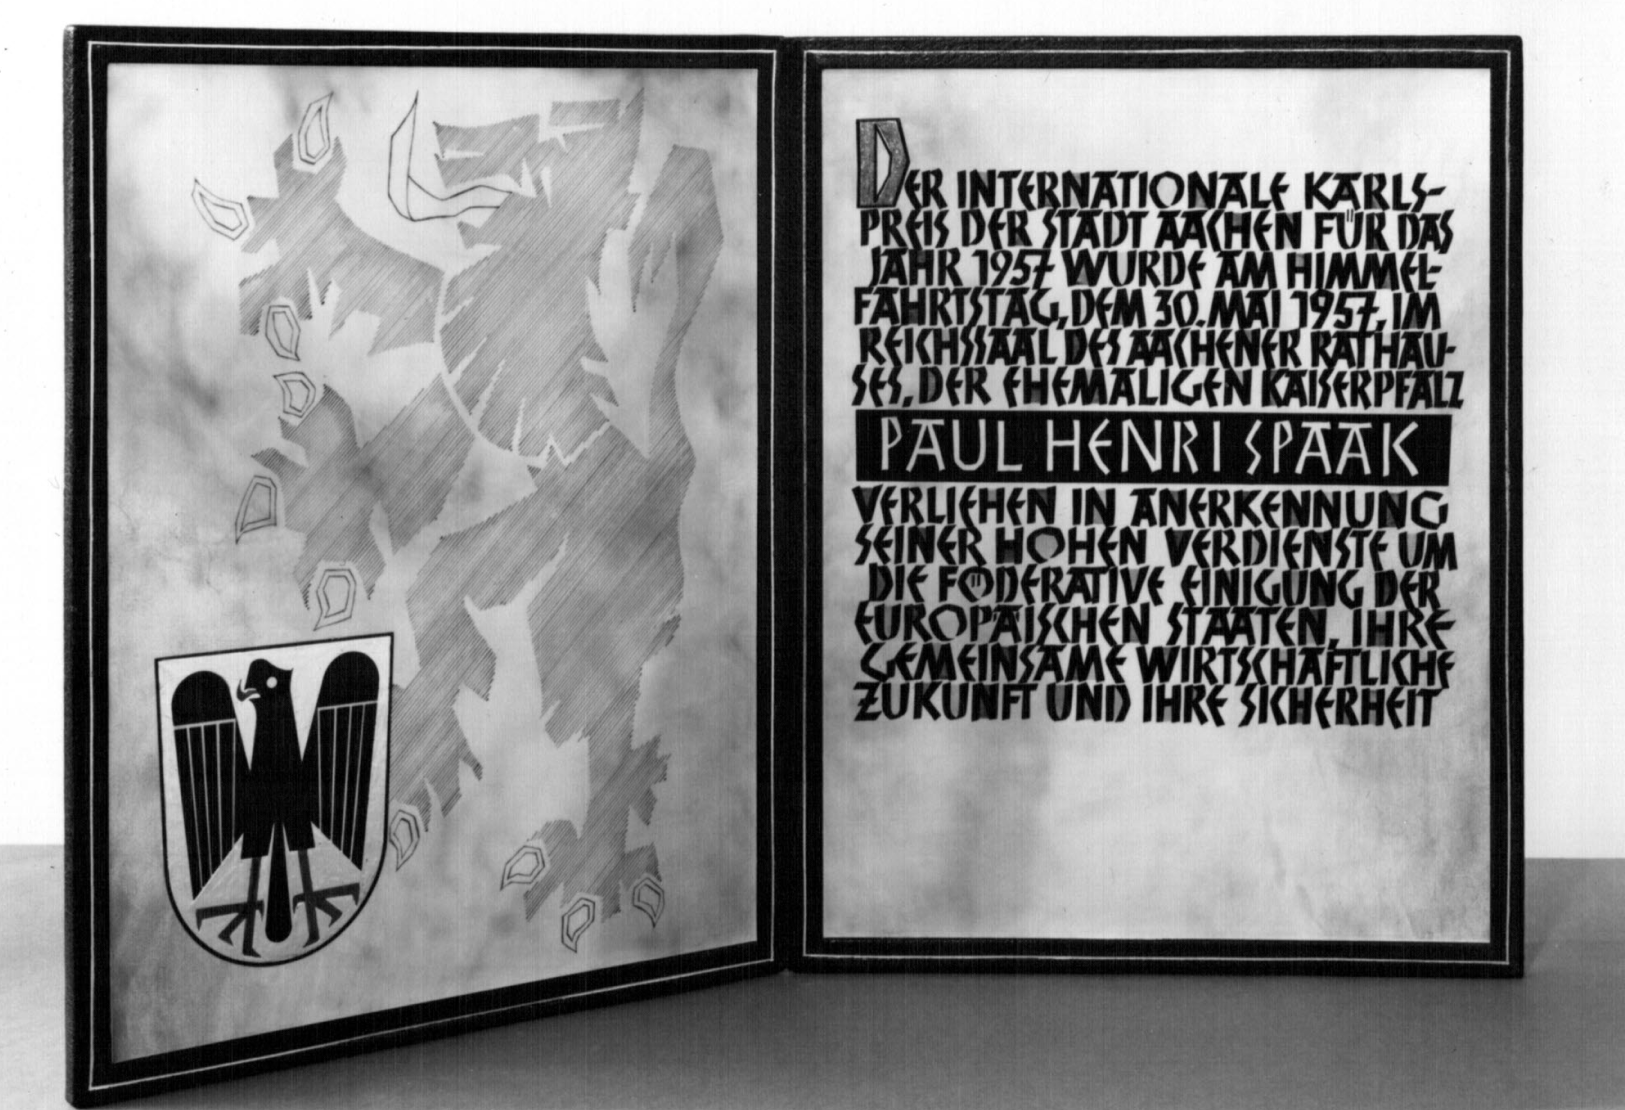 DER INTERNATIONALE KARLS-
PREIS DER STADT AACHEN FÜR DAS
JAHR 1957 WURDE AM HIMMEL-
FAHRTSTAG, DEM 30. MAI 1957, IM
REICHSSAAL DES AACHENER RATHAU-
SES, DER EHEMALIGEN KAISERPFALZ
PAUL HENRI SPAAK
VERLIEHEN IN ANERKENNUNG
SEINER HOHEN VERDIENSTE UM
DIE FÖDERATIVE EINIGUNG DER
EUROPÄISCHEN STAATEN, IHRE
GEMEINSAME WIRTSCHAFTLICHE
ZUKUNFT UND IHRE SICHERHEIT